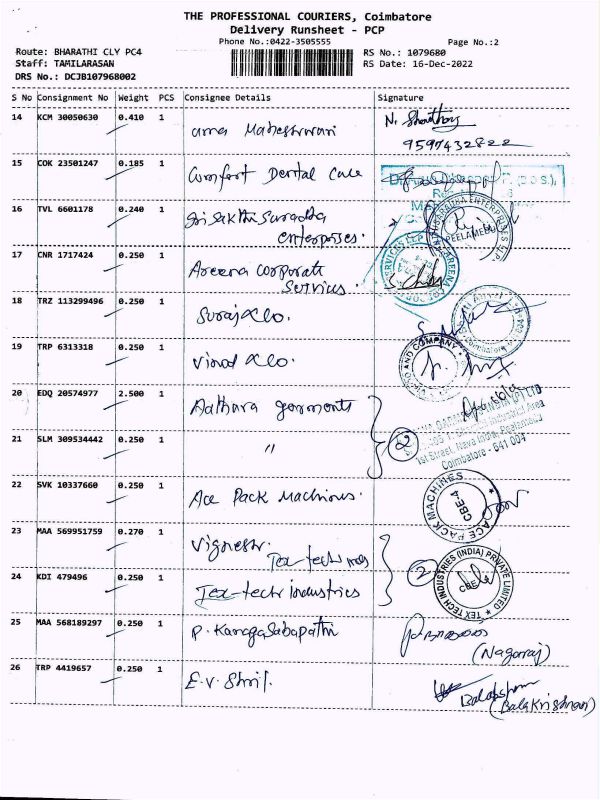 THE PROFESSIONAL COURIERS, Coimbatore
Delivery Runsheet - PCP
Phone No.:0422-3505555
Page No.:2
Route: BHARATHI CLY PC4
RS No.: 1079680
Staff: TAMILARASAN
RS Date: 16-Dec-2022
DRS No.: DCJB107968002
S No Consignment No Weight PCS Consignee Details Signature
14 KCM 30050630 0.410 1 uma Maheshwari
9597432822
15 COK 23501247 0.185 1 Comfort Dental Care
16 TVL 6601178 0.240 1 Sri Sakthi
enterprises.
PEELAMEDU
17 CNR 1717424 0.250 1 Areena Corporate
Services.
18 TRZ 113299496 0.250 1 Suraj &Co.
19 TRP 6313318 0.250 1 Vinod &Co.
AND COMPANY
20 EDQ 20574977 2.500 1 garments
21 SLM 309534442 0.250 1 "
2
Industrial Area
1st Street, Nava India, Peelamedu
Coimbatore - 641 004
22 SVK 10337660 0.250 1 Ace Pack Machines.
ACE PACK MACHINES
CBE-4
23 MAA 569951759 0.270 1
24 KDI 479496 0.250 1 Tex-tech industries
2
TEX TECH INDUSTRIES (INDIA) PRIVATE LIMITED
25 MAA 568189297 0.250 1 P. Kanagasabapathi
(Nagaraj)
26 TRP 4419657 0.250 1 E.V.
(Balakrishnan)